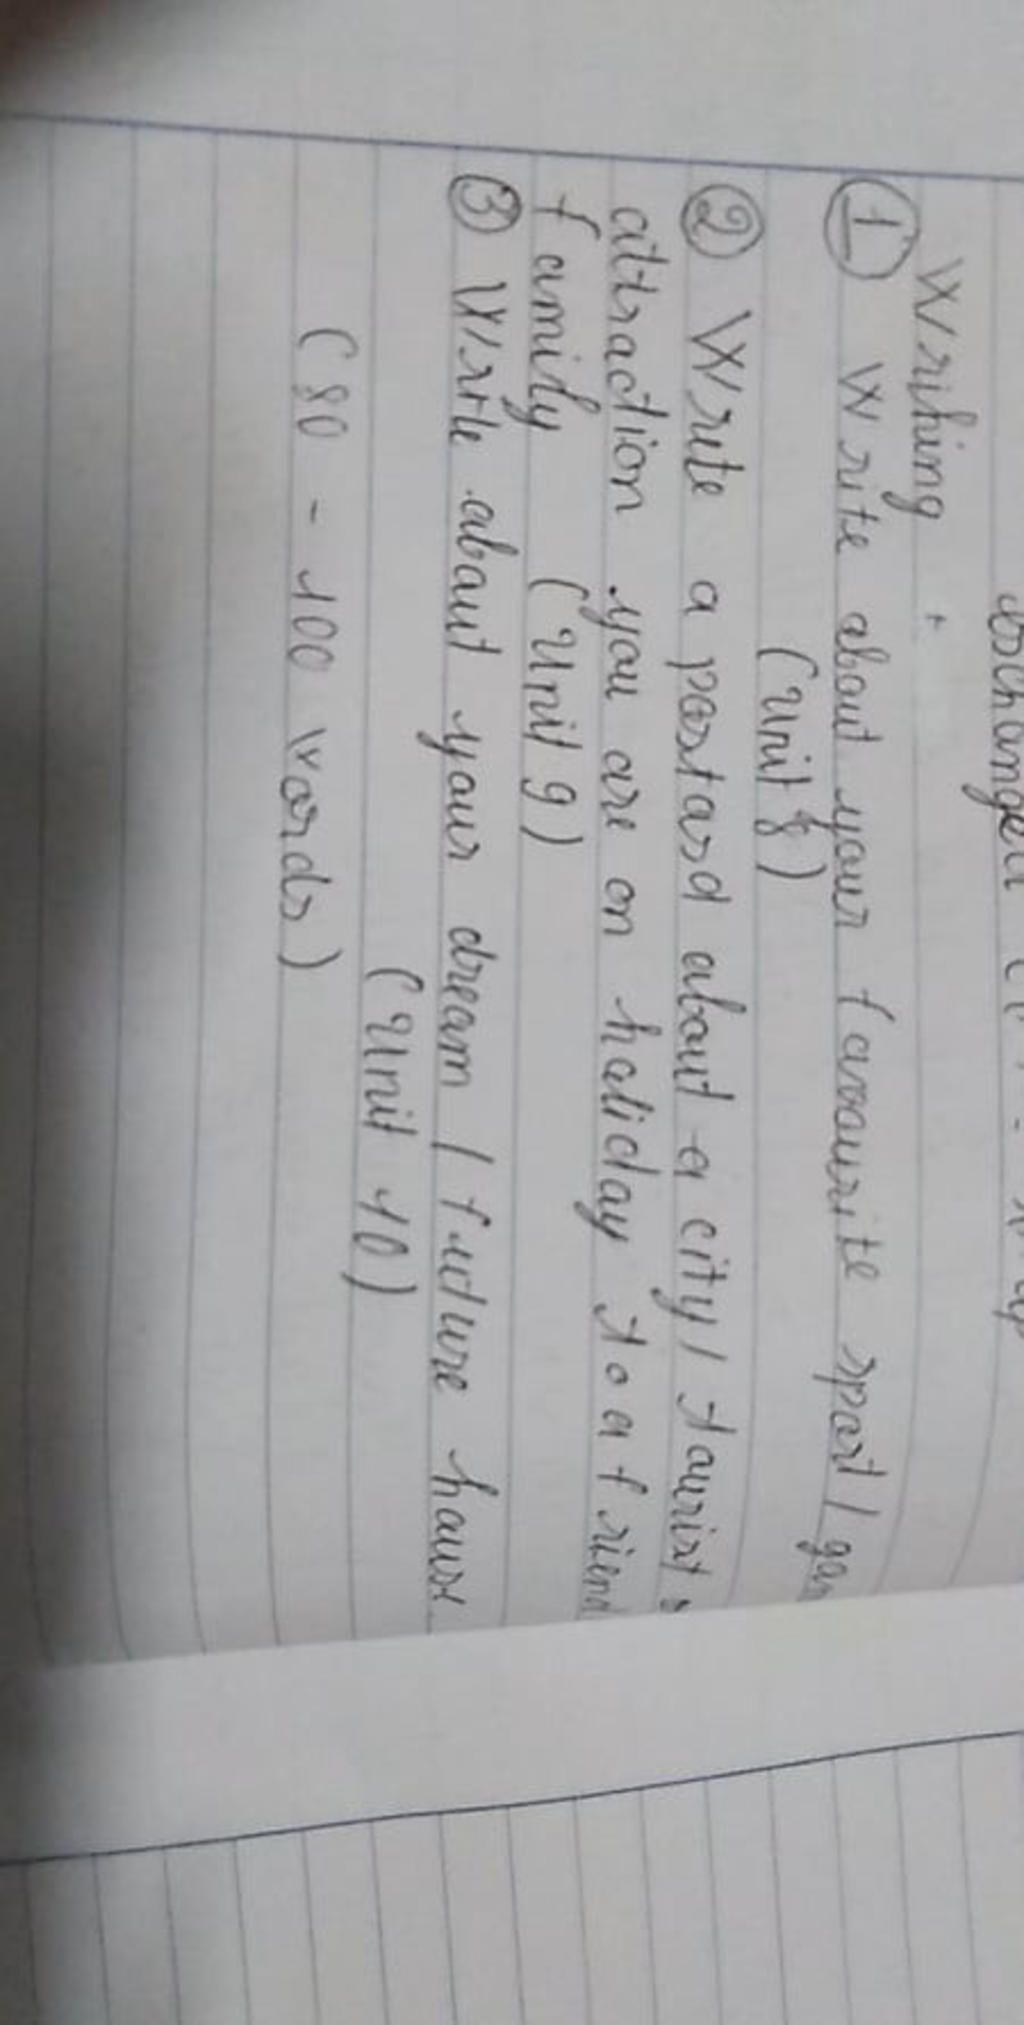 Writing :
① Write about your favourite sport /
(Unit 8)
② Write a postard about a city / tourist
attraction you are on holiday to a friend
family (Unit 9)
③ Write about your dream / future house.
(Unit 10)
(80 - 100 words)